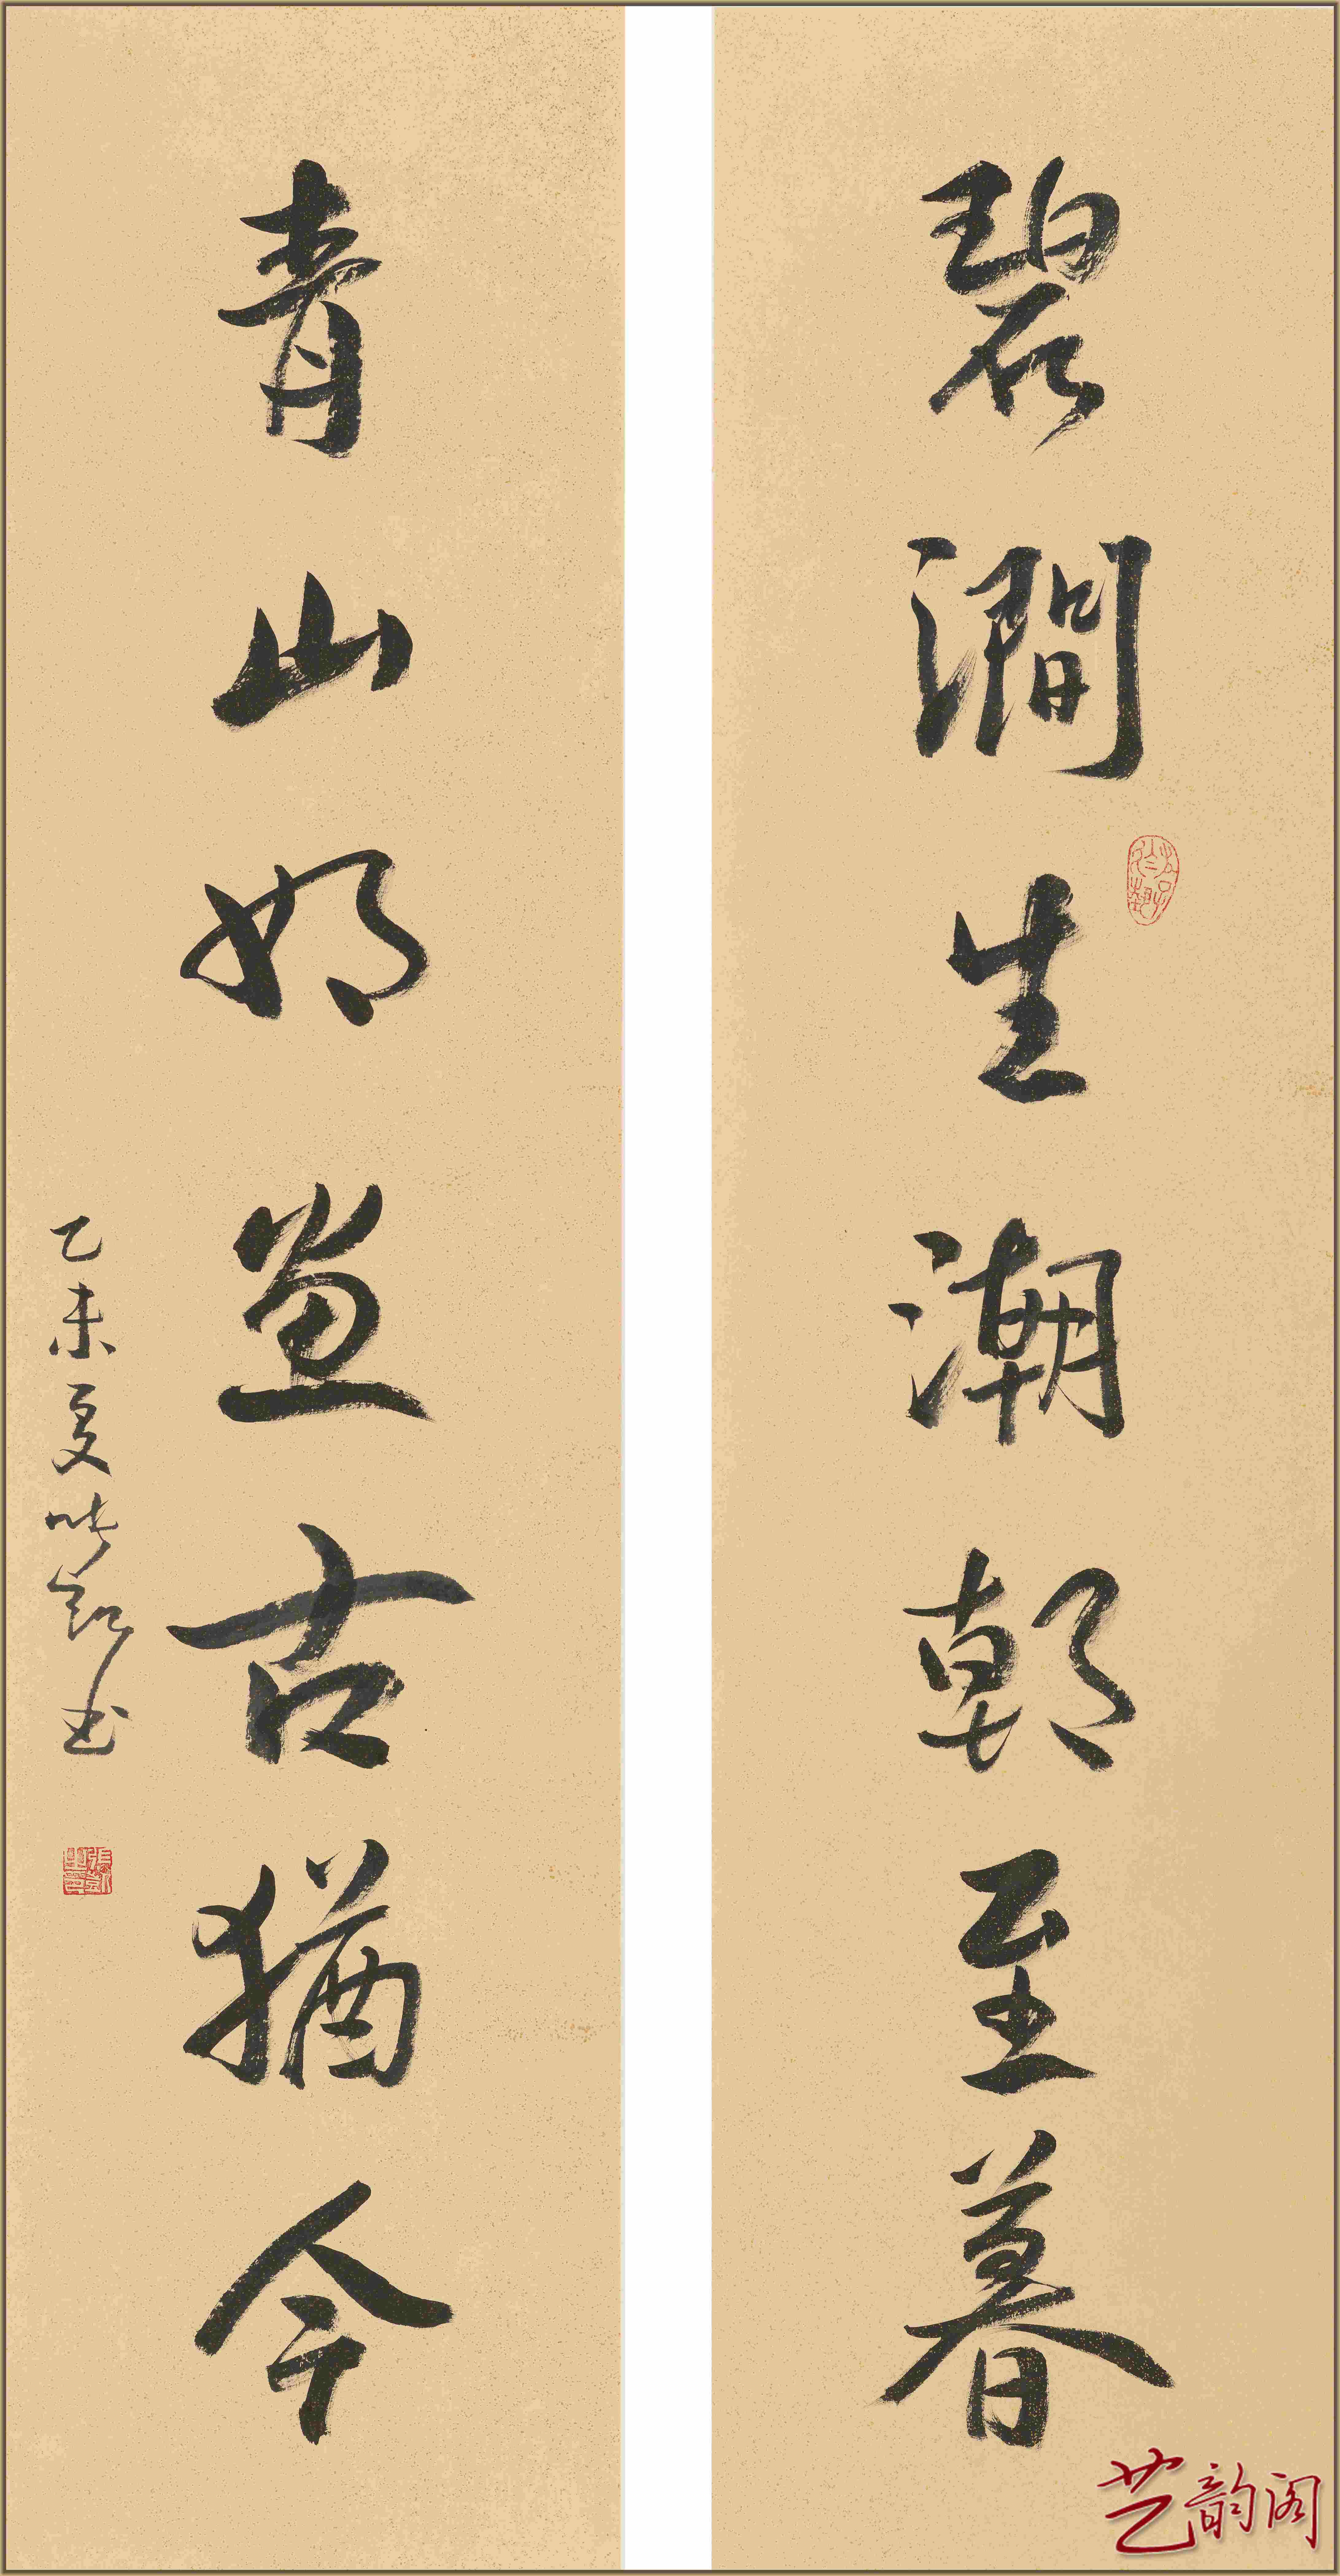 碧澗生潮朝至暮
青山如畫古猶今
乙未夏 張凱书
艺韵阁